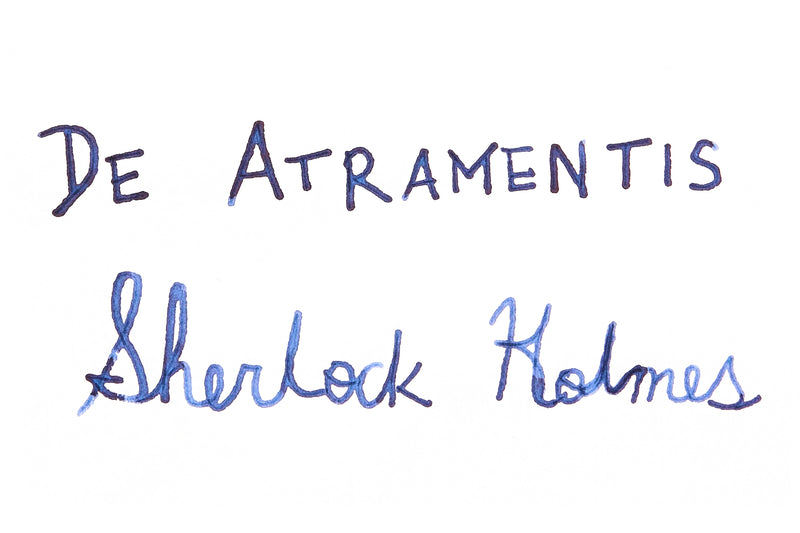 De Atramentis
Sherlock Holmes